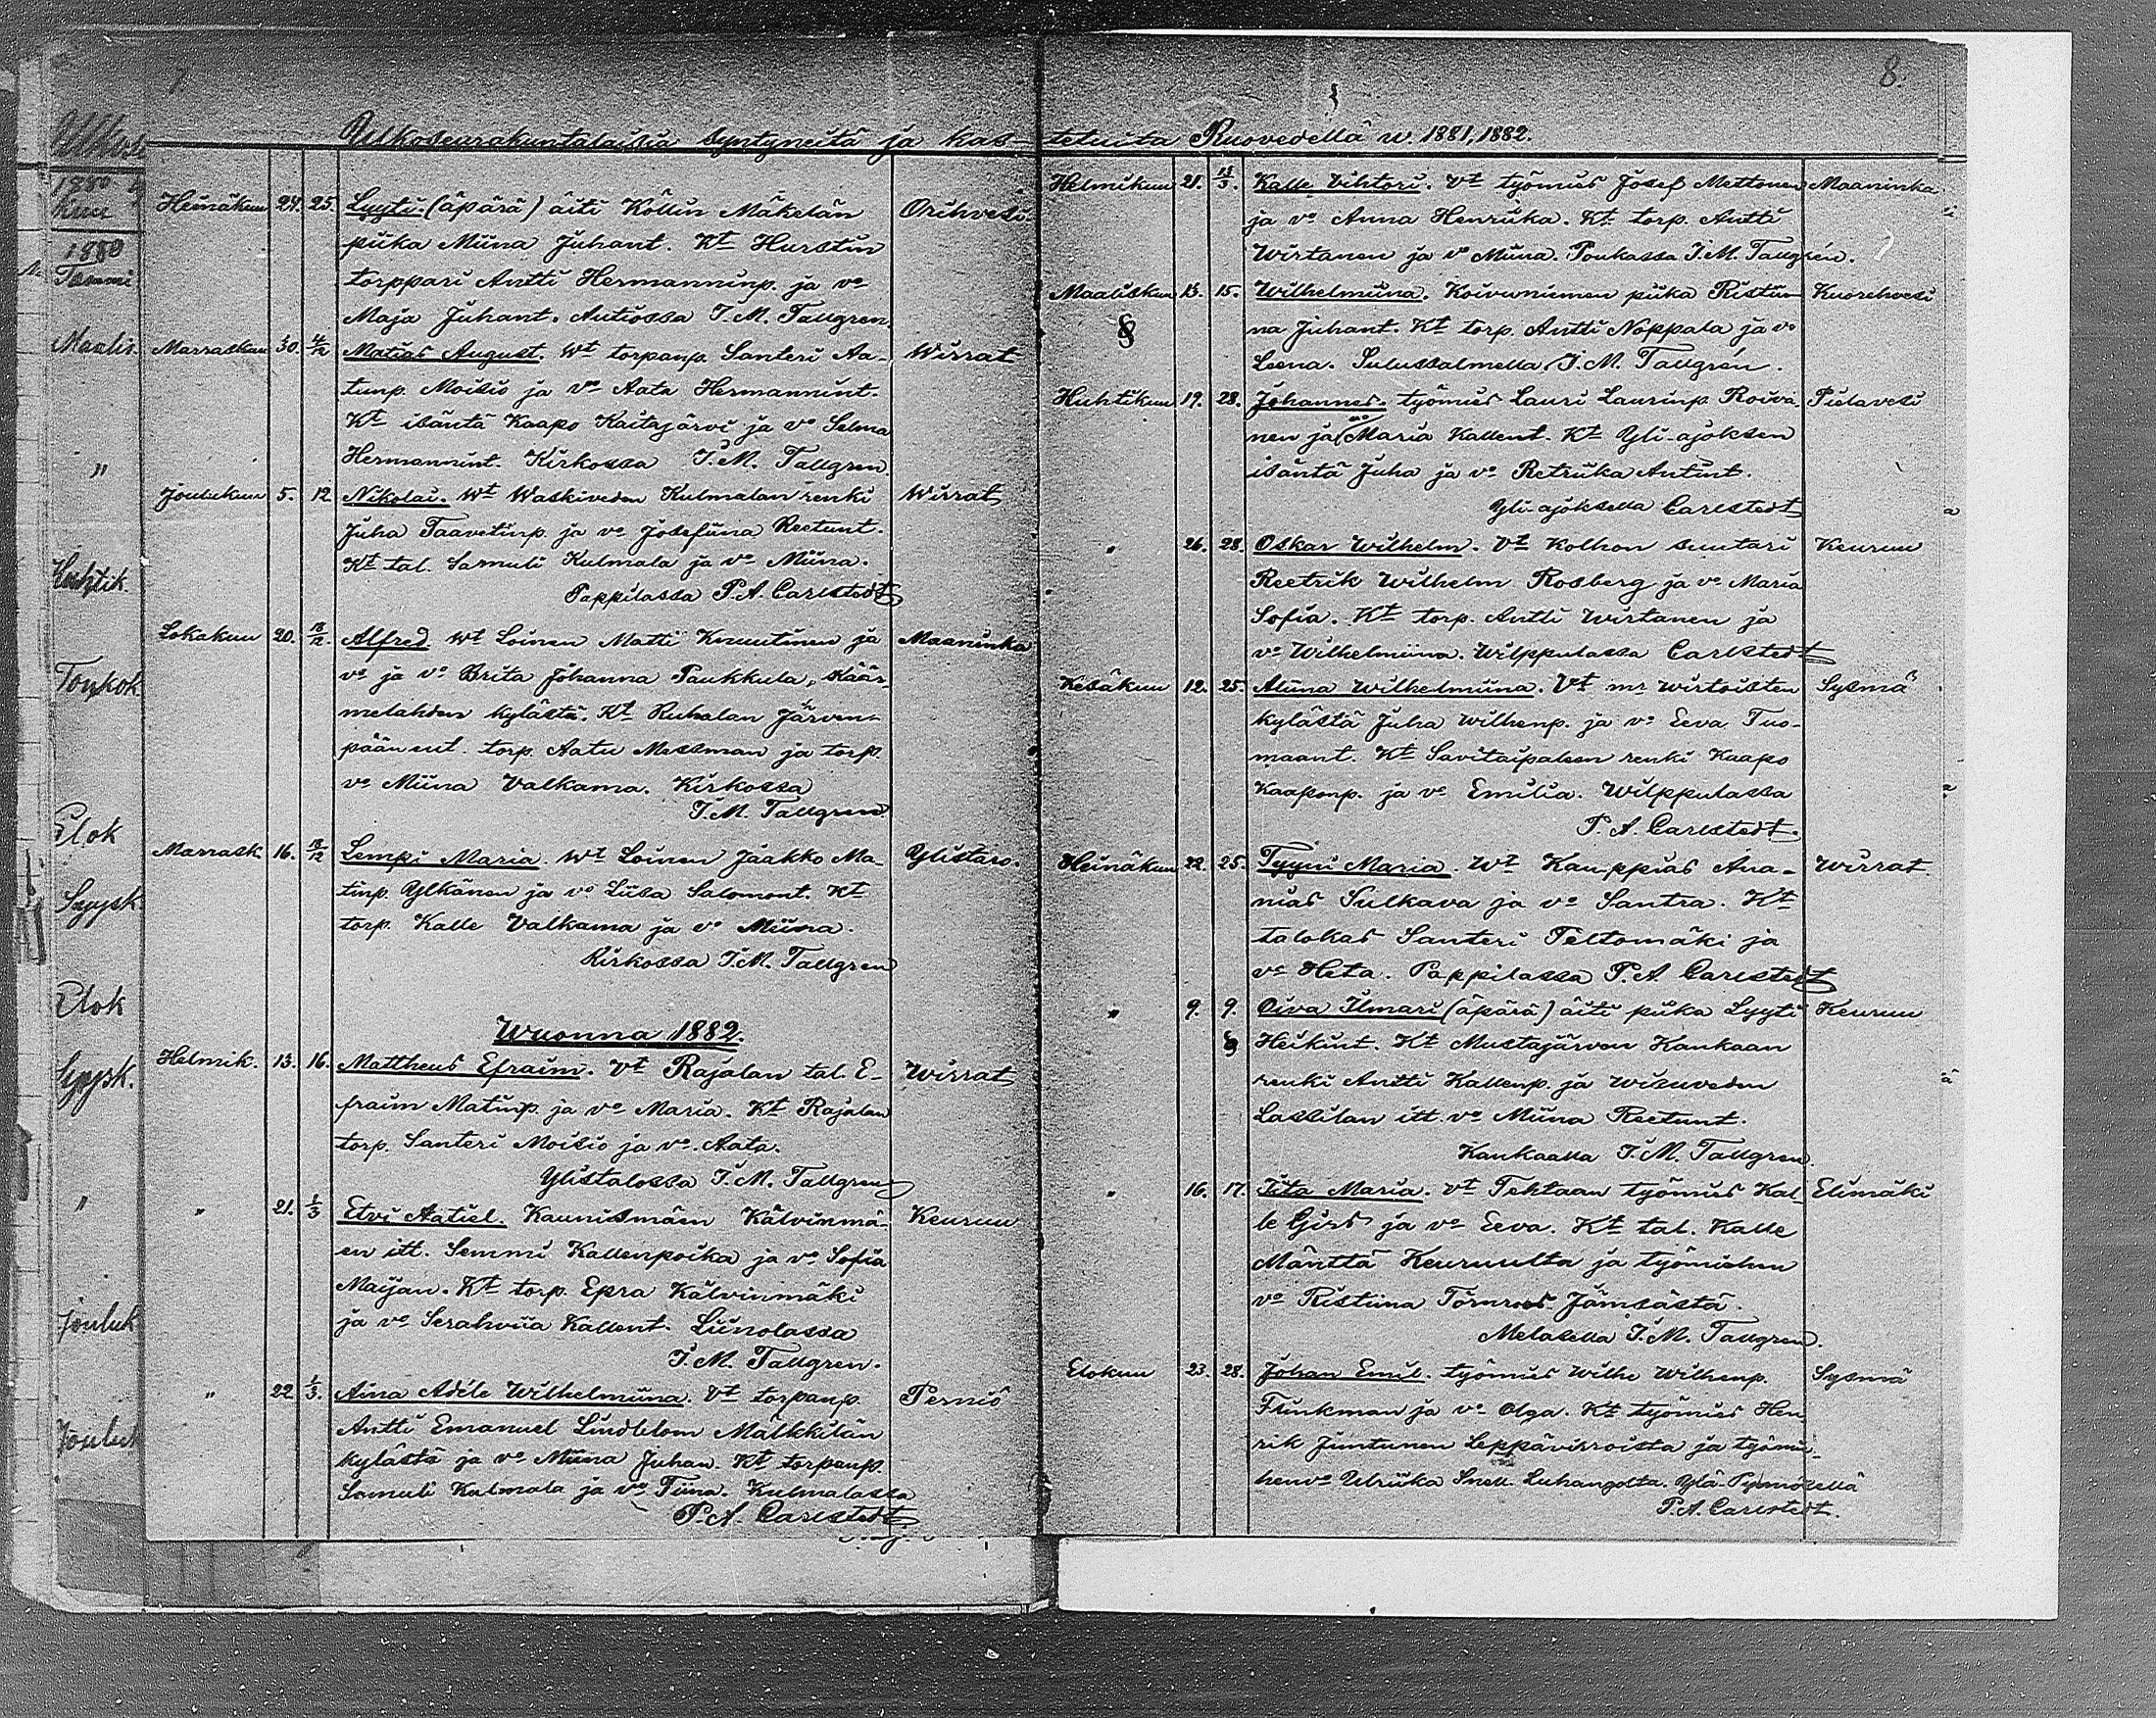 7
8.
Ulkoseurakuntalaisia syntyneitä ja kas-
tetuita Ruovedellä w. 1881, 1882.
Heinäkuu 24. 25. Lyyti (äpärä) äiti Köllin Mäkelän Orihvesi
piika Miina Juhant. Kt Hurstin
torppari Antti Hermanninp. ja vo
Maja Juhant. Autiossa I.M. Tallgren.
Marraskuu 30. 4/12 Matias August. Wt torpanp. Santeri Aa- Wirrat
tunp. Moisio ja vo Aata Hermannint.
Kt isäntä Kaapo Kaitajärvi ja vo Selma
Hermannint. Kirkossa I.M. Tallgren.
Joulukuu 5. 12 Nikolai. Wt Waskiveden Kulmalan renki Wirrat
Juha Taavetinp. ja vo Josefiina Reetunt.
Kt tal. Samuli Kulmala ja vo Miina.
Pappilassa P.A. Carlstedt
Lokakuu 20. 18/12. Alfred. Wt Loinen Matti Knuutinen ja Maaninka
vo ja vo Brita Johanna Paukkula, Käär-
melahden kylästä. Kt Ruhalan Järven-
pään ent. torp. Aatu Messman ja torp.
vo Miina Valkama. Kirkossa
I.M. Tallgren.
Marrask. 16. 18/12 Lempi Maria. Wt Loinen Jaakko Ma- Ylistaro.
tinp. Ylkänen ja vo Liisa Salomont. Kt
torp. Kalle Valkama ja vo Miina.
Kirkossa I.M. Tallgren
Wuonna 1882.
Helmik. 13. 16. Mattheus Efraim. Vt Rajalan tal. E- Wirrat
fraim Matinp. ja vo Maria. Kt Rajalan
torp. Santeri Moisio ja vo Aata.
Ylistalossa I.M. Tallgren
" 21. 1/3 Etvi Aatiel. Kaunismäen Kälvinmä- Keuruu
en itt. Semmi Kallenpoika ja vo Sofia
Maijan. Kt torp. Epra Kälvinmäki
ja vo Serahviia Kallent. Liinolassa
I.M. Tallgren.
" 22. 1/3. Aina Adéle Wilhelmiina. Vt torpanp. Perniö
Antti Emanuel Lindblom Mälkkilän
kylästä ja vo Miina Juhan. Kt torpanp.
Samuli Kulmala ja vo Tiina. Kulmalassa
P.A. Carlstedt
Helmikuu 21. 13/3. Kalle Vihtori. Vt työmies Josef Mettonen Maaninka
ja vo Anna Henriika. Kt torp. Antti
Wirtanen ja vo Miina. Poukassa I.M. Tallgrén.
Maaliskuu 13. 15. Wilhelmiina. Koivuniemen piika Ristii- Kuorehvesi
na Juhant. Kt torp. Antti Noppala ja vo
Leena. Sulussalmella I.M. Tallgrén.
Huhtikuu 19. 28. Johannes. työmies Lauri Laurinp. Roiva- Pielavesi
nen ja vo Maria Kallent. Kt Yli-ajoksen
isäntä Juha ja vo Retriika Antint.
Yli-ajoksella Carlstedt
" 26. 28. Oskar Wilhelm. Vt Kolhon suutari Keuruu
Reetrik Wilhelm Rosberg ja vo Maria
Sofia. Kt torp. Antti Wirtanen ja
vo Wilhelmiina. Wilppulassa Carlstedt
Kesäkuu 12. 25. Aliina Wilhelmiina. Vt mr Wirtoisten Sysmä
kylästä Juha Wilhenp. ja vo Eeva Tuo-
maant. Kt Savitaipaleen renki Kaapo
Kaaponp. ja vo Emilia. Wilppulassa
P.A. Carlstedt.
Heinäkuu 22. 25. Tyyni Maria. Wt Kauppias Ana- Wirrat
nias Sulkava ja vo Santra. Kt
talokas Santeri Peltomäki ja
vo Heta. Pappilassa P.A. Carlstedt
" 9. 9. Oiva Ilmari (äpärä) äiti piika Lyyti Keuruu
Heikint. Kt Mustajärven Kankaan
renki Antti Kallenp. ja Wisuveden
Lassilan itt. vo Miina Reetunt.
Kankaalla I.M. Tallgren.
" 16. 17. Iita Maria. vt Tehtaan työmies Kal- Elimäki
le Girs ja vo Eeva. Kt tal. Kalle
Mänttä Keuruulta ja työmiehen
vo Ristiina Törnroos Jämsästä.
Melasella I.M. Tallgren.
Elokuu 23. 28. Johan Emil. työmies Wilhe Wilhenp. Sysmä
Frinkman ja vo Olga. Kt työmies Hen-
rik Juntunen Leppävirroista ja työmie-
hen vo Ulriika Snell. Luhangolta.
P.A. Carlstedt.
1880
kuu
1880
Tammi
Maalis.
"
Huhtik.
Toukok.
Elok
Syysk.
Elok
Syysk.
"
Jouluk
Jouluk